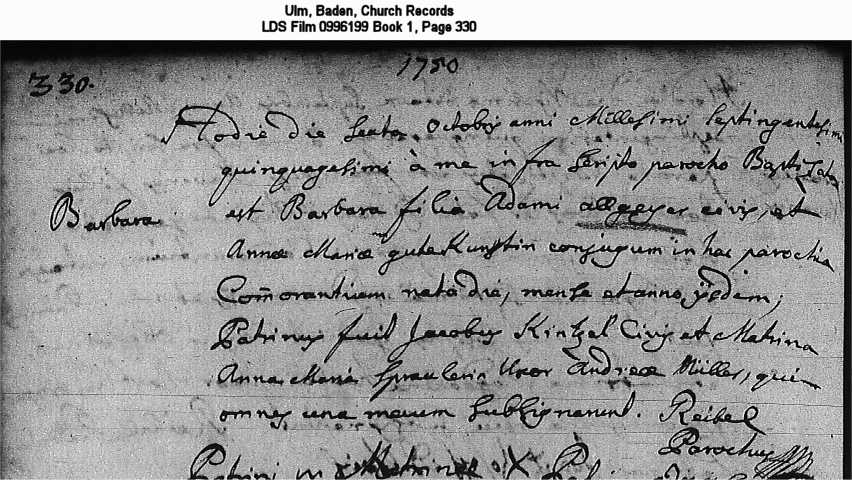 Ulm, Baden, Church Records
LDS Film 0996199 Book 1, Page 330
330.
1750
Hodie die sexta octobris anni Millesimi septingentesimi
quinquagesimi à me infra scripto parocho Baptizata
Barbara
est Barbara filia Adami allgeyer civis, et
Annæ Mariæ gutekunstin conjugum in hac parochia
Com̄orantium nata die, mense et anno ijsdem;
Patrinus fuit Jacobus Kintzel Civis et Matrina
Anna Maria Uxor Andreæ Müller, qui
omnes una mecum subsignarunt. Reibel
Parochus